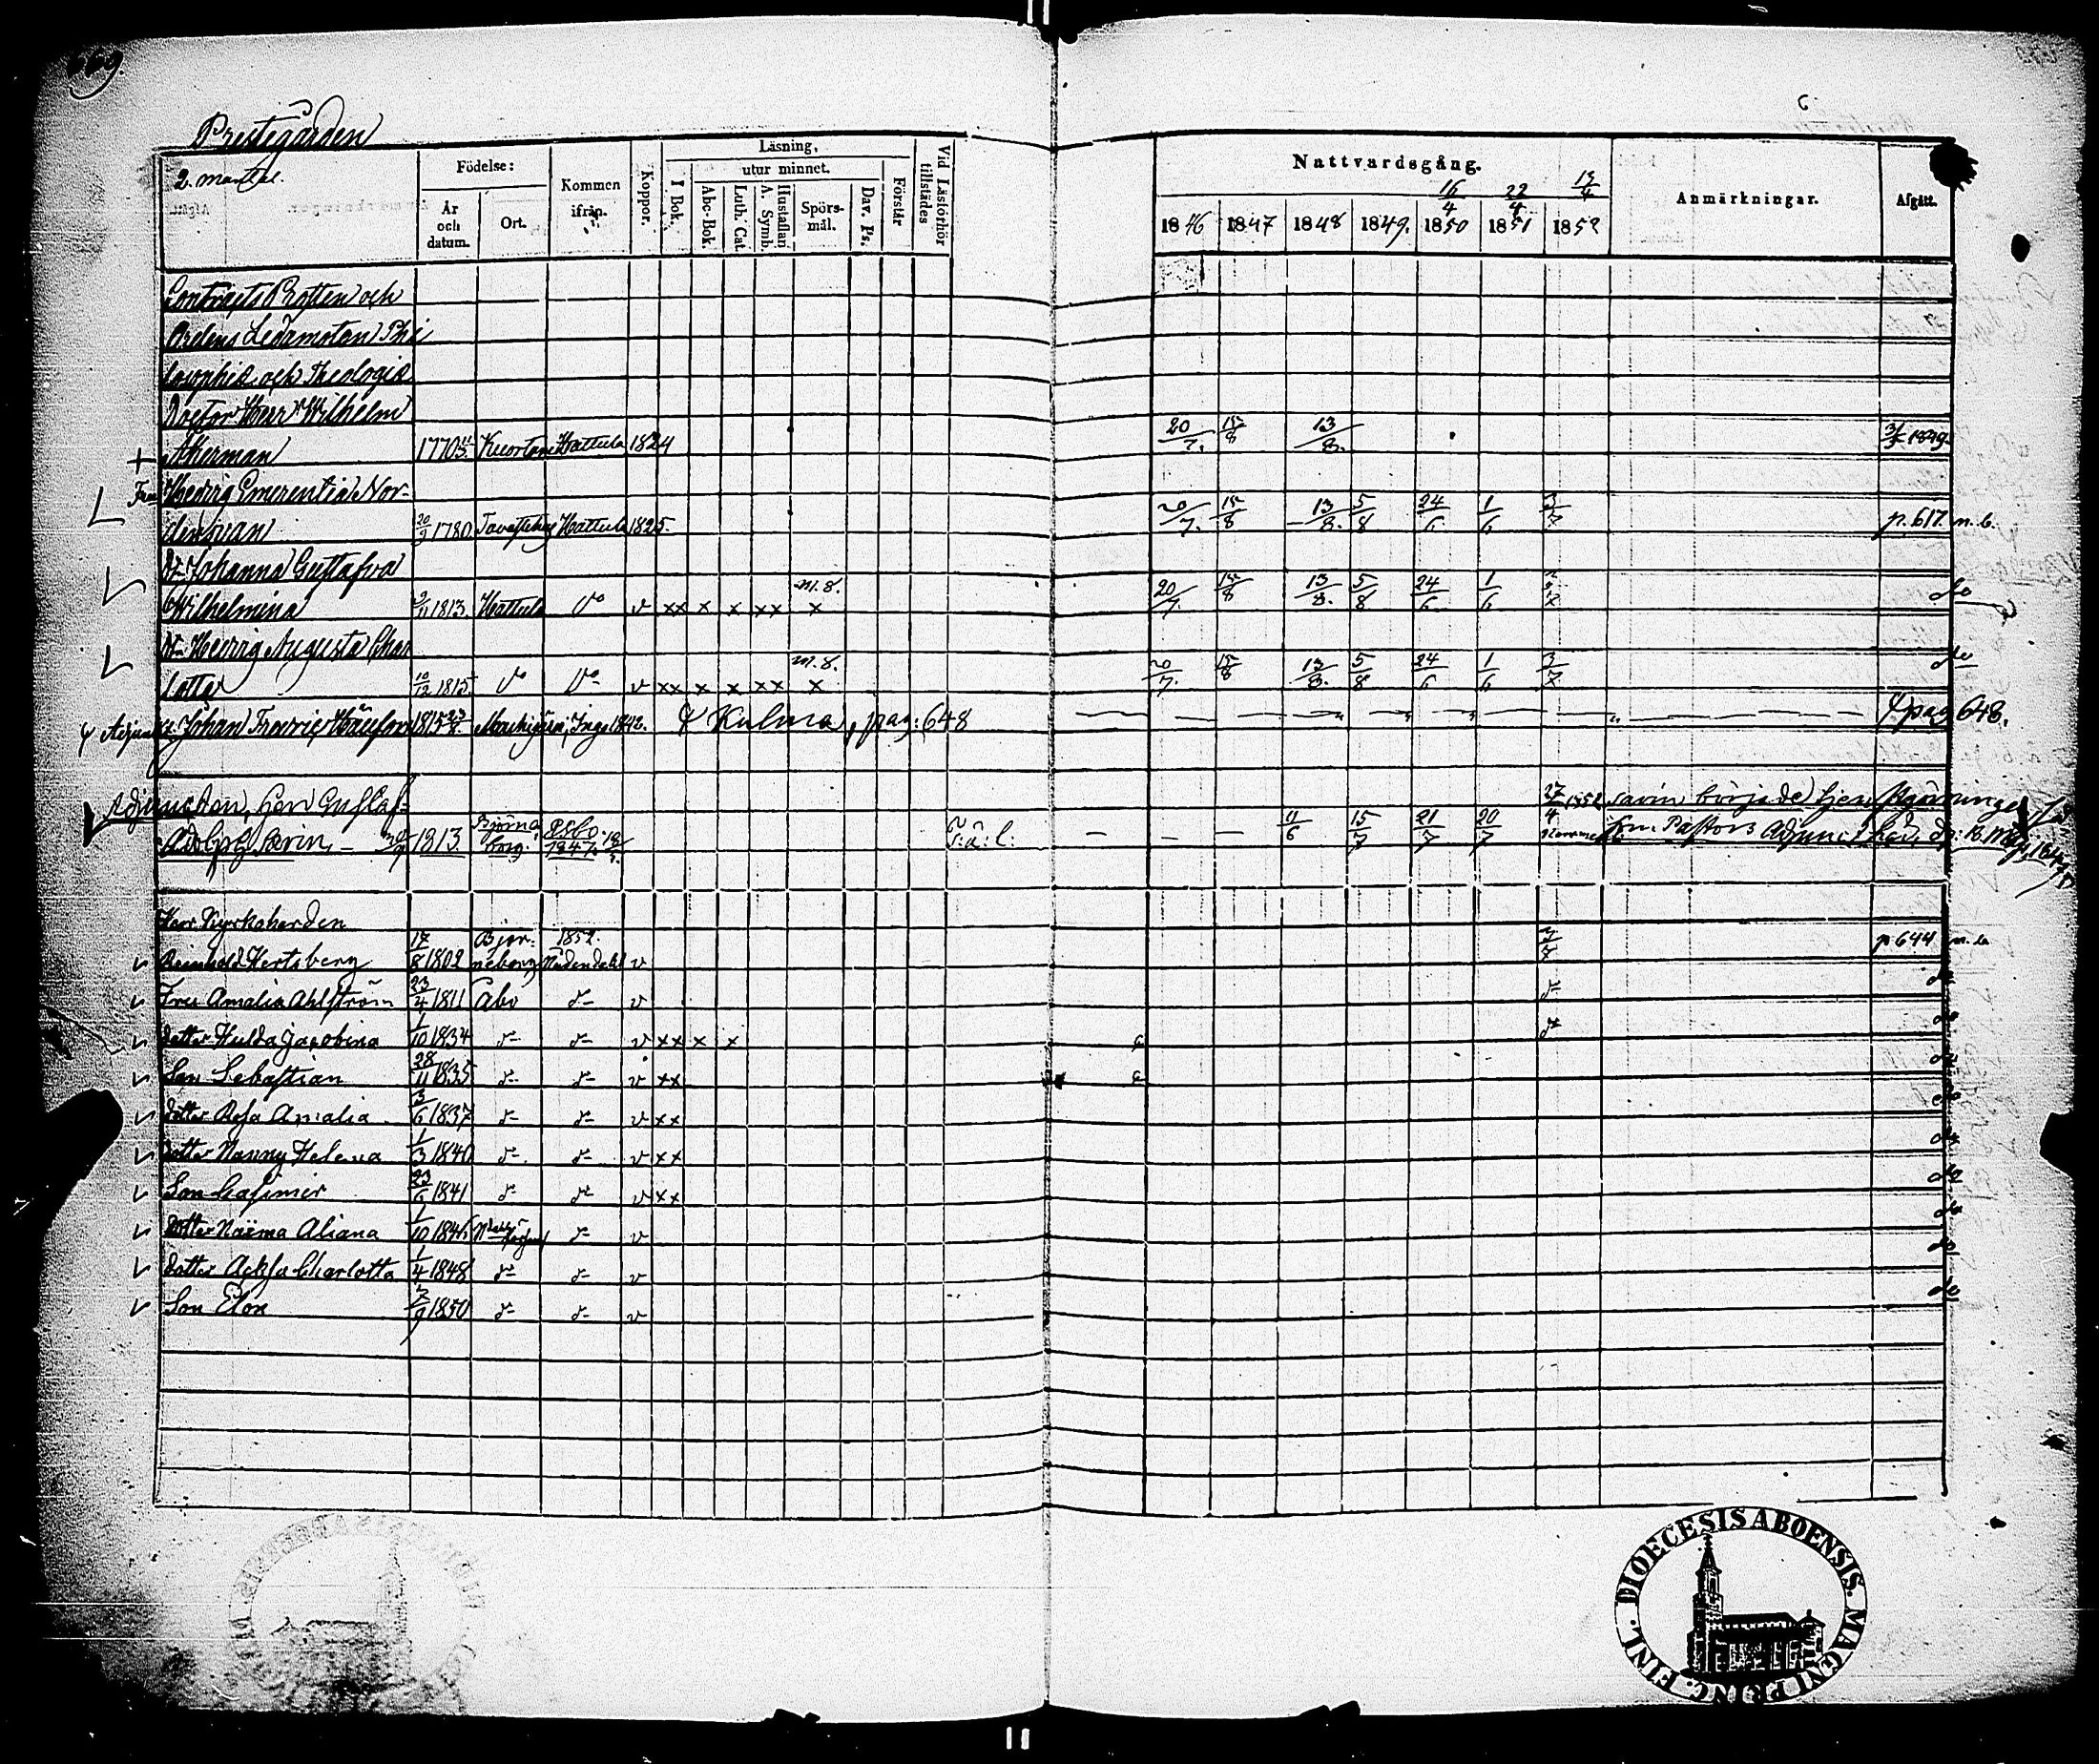 669.
Prestegården
2. mantal.
Födelse:
År och datum.
Ort.
Kommen ifrån.
Koppor.
Läsning,
utur minnet.
I Bok.
Abc-Bok
Luth. Cat.
Hustaflan A. Symb.
Spörsmål.
Dav. Ps.
Förstår
Vid Läsförhör tillstädes
Nattvardsgång.
16/4 22/4
1846 1847 1848 1849. 1850 1851 1852
Anmärkningar.
Afgått.
Contracts Prosten och
Ordens Ledamoten Phi
losophiæ och Theologiæ
Doctor Herr Wilhelm
+ Åkerman 1770 Kuortane Hattula 1824 20/7. 15/8 13/8. 1849.
Fru Hedvig Emerentia Nor-
denswan 20/9 1780. Tavastehus Hattula 1825. 20/7. 15/8 13/8. 5/8 24/6 1/6 3/7 p. 617. n. b.
Dr Johanna Gustafva
Wilhelmina 2/11 1813. Hattula Do v xx x x xx m.8. x 20/7. 15/8 13/8. 5/8 24/6 1/6 do
Dr Hedvig Augusta Char
lotta 10/12 1815. Do Do v xx x x xx m.8. x 20/7. 15/8 13/8. 5/8 24/6 1/6 3/7 do
Johan Fredric 1815 Ingo 1842. Kulma, pag: 648 pag 648.
Adjuncten, Herr Gustaf
Adolph Savin, 1813. Björneborg. Esbo. 1847. s:a:l: — — 11/6 15/7 21/7 20/7
27/4 1852 Savin började tjenstgöringen
som Pastors Adjunct
Herr Kyrkoherden
Reinhold Hertsberg 17/8 1802 Björneborg 1852. Nådendahl v 3/7 p 644 n. b.
Fru Amalia Ahlström 23/4 1811 Åbo d- v d- do
dotter Hulda Jacobina 1/10 1834 d- d- v xx x x d- do
Son Sebastian 28/11 1835 d- d- v xx do
dotter Rosa Amalia 3/6 1837 d- d- v xx do
dotter Nanny Helena 1/3 1840 d- d- v xx do
Son Casimir 23/6 1841 d- d- v xx do
dotter Naëma Aliana 1/10 1846 d- v do
dotter Acksa Charlotta 1/4 1848 d- d- v do
Son Elon 1850 d- d- v do
DIOECESIS ABOENSIS. MAGNI PRINC. FINL.